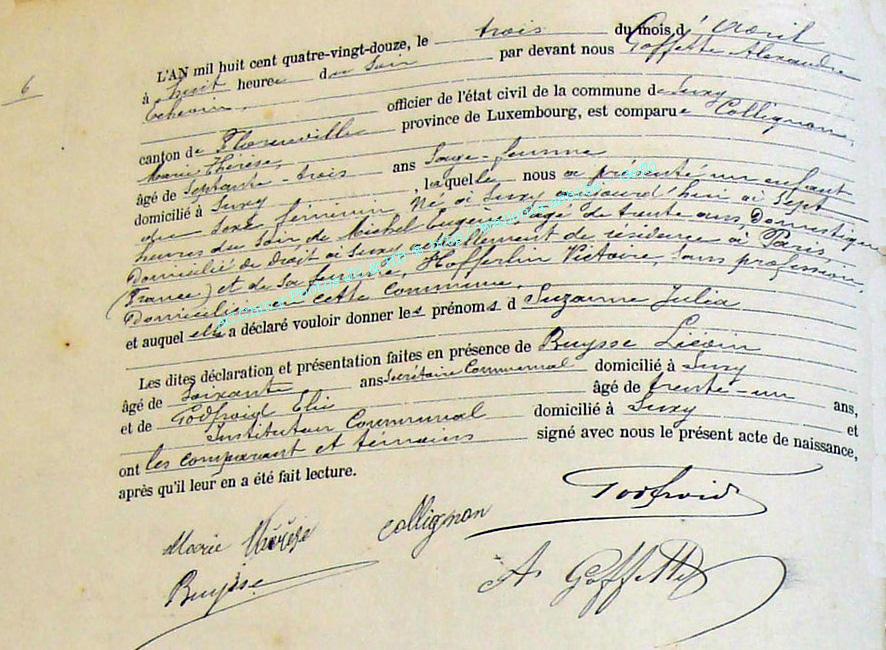 6
L'AN mil huit cent quatre-vingt-douze, le trois du mois d'Avril
à huit heures du Soir par devant nous Goffette Alexandre
Echevin, officier de l'état civil de la commune de Suxy
canton de Florenville province de Luxembourg, est comparue Collignon,
Marie Thérèse,
âgé de Septante-trois ans Sage-femme
domicilié à Suxy, laquelle nous a présenté un enfant
du Sexe féminin Né à Suxy aujourd'hui à Sept
heures du Soir de Michel Eugène, âgé de trente ans, Domestique
Domicilié de Droit à Suxy actuellement de résidence à Paris,
(France) et de Sa femme, Hofferlin Victoire, Sans profession,
Domiciliée en cette Commune,
et auquel elle a déclaré vouloir donner les prénoms d Suzanne Julia
Les dites déclaration et présentation faites en présence de Buysse Liévin
âgé de Soixante ans Secrétaire Communal domicilié à Suxy
et de Godfroid Elie âgé de trente-un ans,
Instituteur Communal domicilié à Suxy et
ont les comparant et témoins signé avec nous le présent acte de naissance,
après qu'il leur en a été fait lecture.
Godfroid
Marie Thérèse Collignon
Buysse
A Goffette